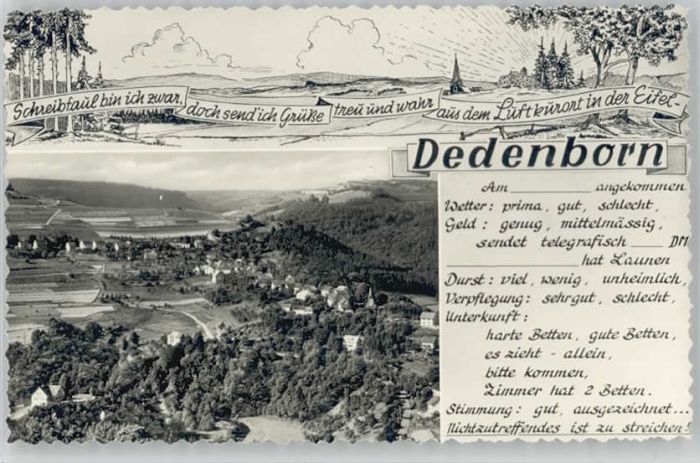 Schreibfaul bin ich zwar, doch send' ich Grüße treu und wahr aus dem Luftkurort in der Eifel-
Dedenborn
Am ________ angekommen
Wetter: prima, gut, schlecht,
Geld: genug, mittelmässig,
sendet telegrafisch ___ DM
________ hat Launen
Durst: viel, wenig, unheimlich,
Verpflegung: sehr gut, schlecht,
Unterkunft:
harte Betten, gute Betten,
es zieht - allein,
bitte kommen,
Zimmer hat 2 Betten.
Stimmung: gut, ausgezeichnet...
Nichtzutreffendes ist zu streichen!